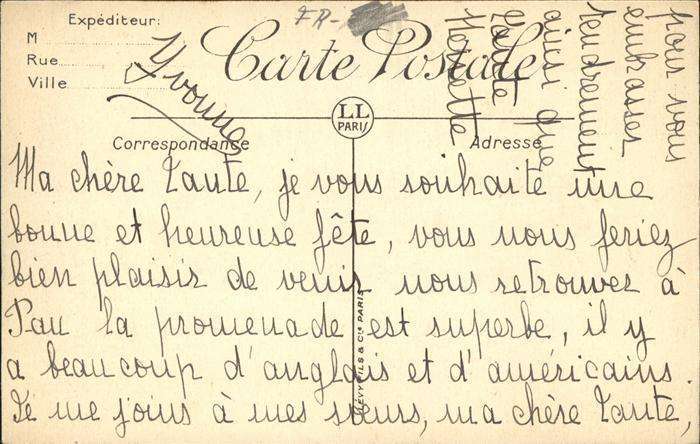 Expéditeur:
M
Rue
Ville
FR-
Carte Postale
LL
PARIS
Correspondance
Adresse
Ma chère Tante, je vous souhaite une
bonne et heureuse fête, vous nous feriez
bien plaisir de venir nous retrouver à
Pau la promenade est superbe, il y
a beaucoup d'anglais et d'américains.
Je me joins à mes sœurs, ma chère Tante,
pour vous
embrasser
tendrement
ainsi que
Henriette
Yvonne
LÉVY FILS & Cie PARIS